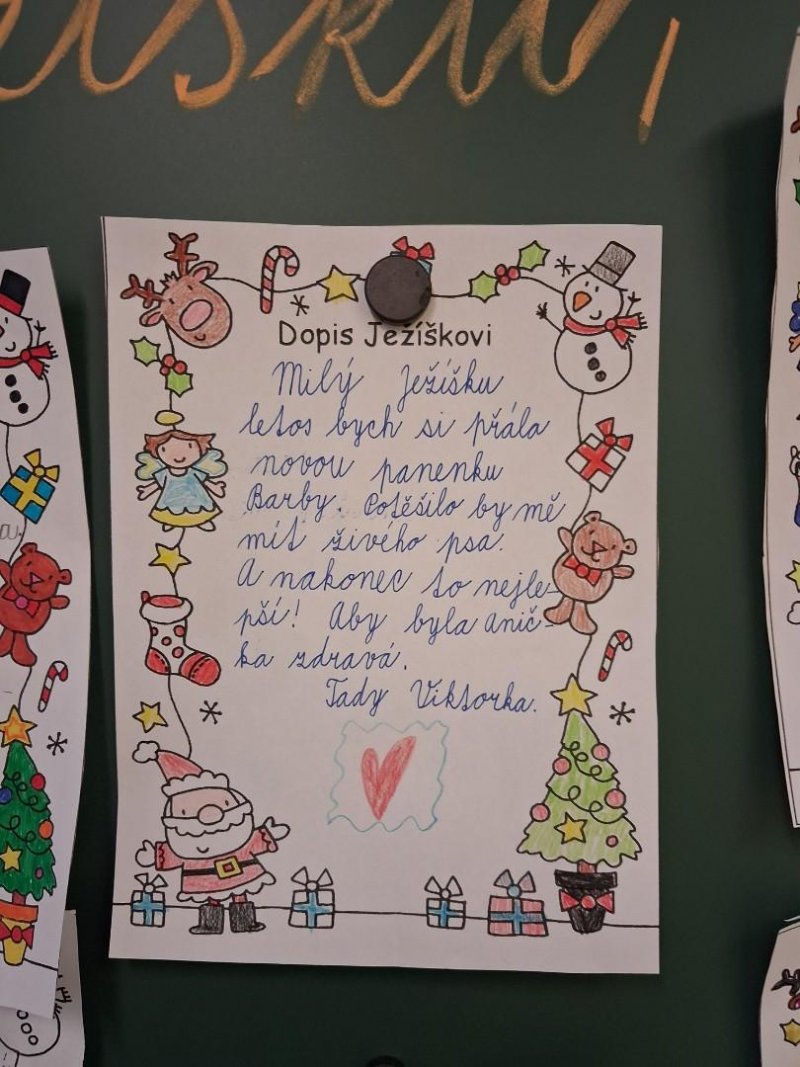 Dopis Ježíškovi
Milý Ježíšku
letos bych si přála
novou panenku
Barby. Potěšilo by mě
mít živého psa.
A nakonec to nejle-
pší! Aby byla Anič-
ka zdravá.
Tady Viktorka.